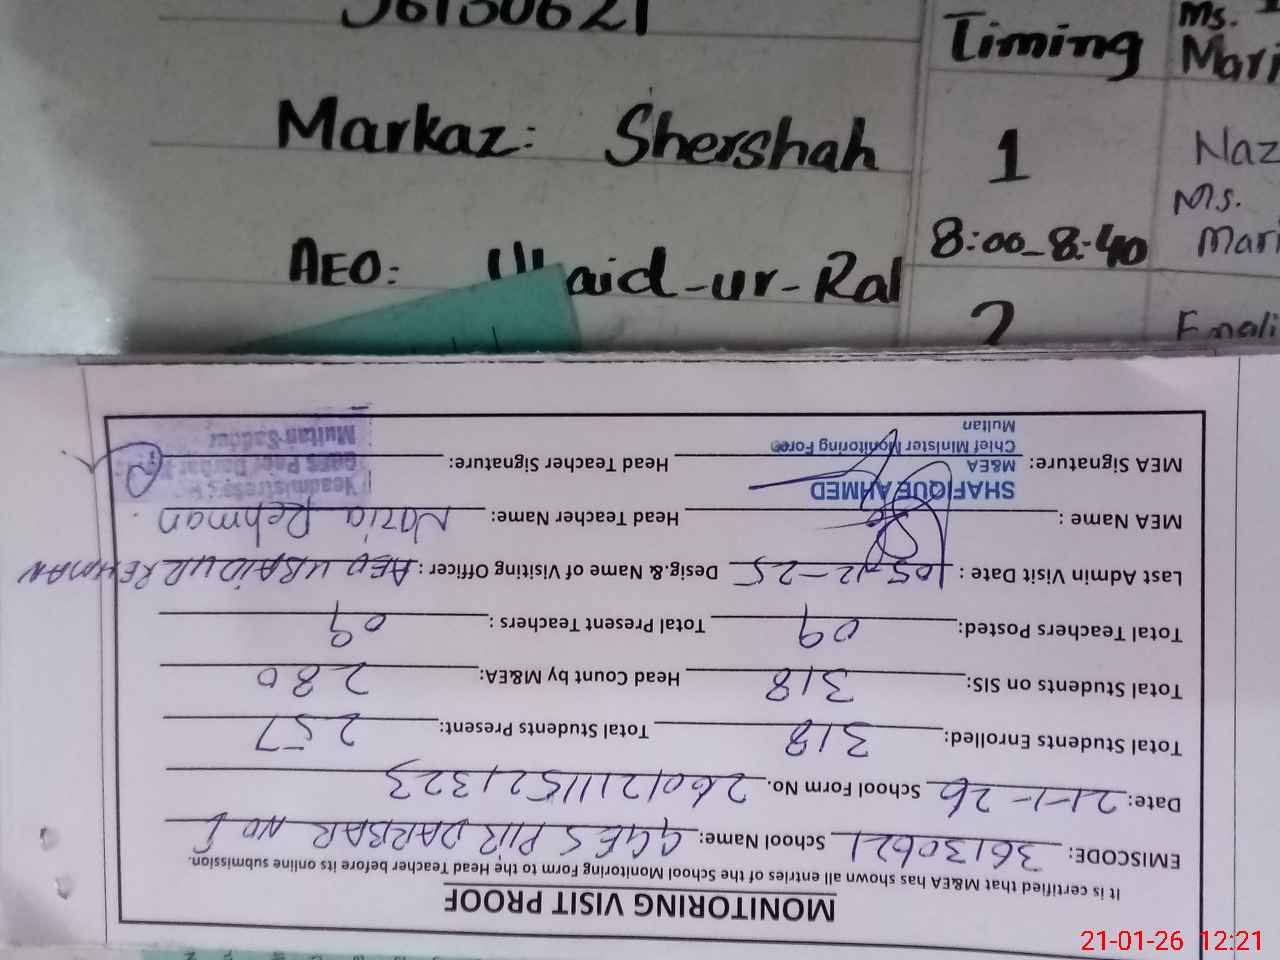 36130621
Markaz: Shershah
AEO: Ubaid-ur-Ra
Timing
Ms.
Mari
1
Naz
8:00-8:40
Ms.
Mari
2
Engli
MONITORING VISIT PROOF
It is certified that M&EA has shown all entries of the School Monitoring Form to the Head Teacher before its online submission.
EMISCODE: 36130621 School Name: GGES PIR DARBAR NO 1
Date: 21-1-26 School Form No. 26012111521323
Total Students Enrolled: 318 Total Students Present: 257
Total Students on SIS: 318 Head Count by M&EA: 280
Total Teachers Posted: 09 Total Present Teachers : 09
Last Admin Visit Date : 05-12-25 Desig.& Name of Visiting Officer : AEO UBAID UR REHMAN
MEA Name : Head Teacher Name: Nazia Rehman.
SHAFIQUE AHMED
M&EA
Chief Minister Monitoring Force
Multan
MEA Signature: Head Teacher Signature:
Headmistress
GGES Peer Darbar
Multan Saddar
21-01-26 12:21